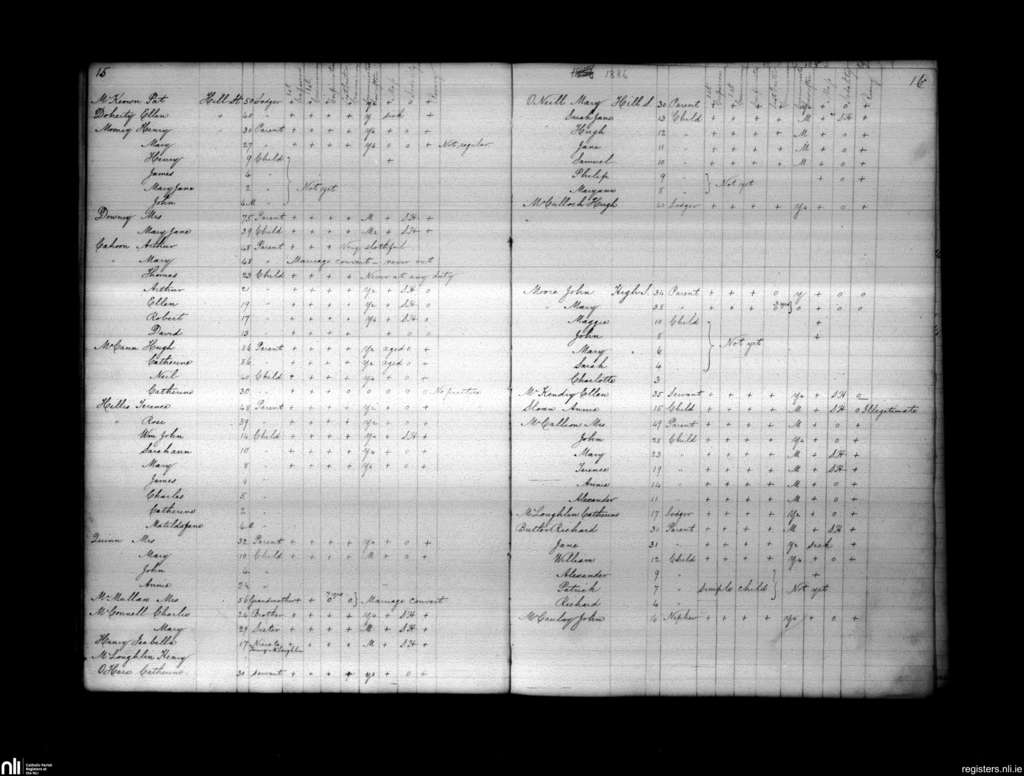 15
McKeown Pat Hill St 50 Lodger + + + + + ya + o +
Doherty Ellen " 40 " + + + + + y sick +
Henry 30 Parent + + + + + ya + o +
Mary 27 " + + + + + ya o o + Not regular
Henry 9 Child +
James 4 "
Mary Jane 2 " Not yet
John
Downey Mrs 75 Parent + + + + M + SH +
Mary Jane 39 Child + + + + + SH +
Cahoon Arthur 48 Parent + + + Very slothful
" Mary 48 " Marriage convert - never out
Thomas 23 Child + + + + Never at any duty
Arthur 21 " + + + + ya + SH o
Ellen 19 " + + + + ya + SH o
Robert 17 " + + + + ya + SH o
David 13 " + o o
McCann Hugh 86 Parent + + + + ya aged o +
Catherine 86 " + + + + ya aged o +
Neil 40 Child + + + + ya + o +
Catherine 30 " + o o o o No practice
Terence 48 Parent + + + + ya + o +
" Rose 39 " + + + + ya + o +
Wm John 14 Child + + + + ya + SH +
Sarahann 10 " + + + + ya + o +
Mary 8 " + + + + ya + o +
James "
Charles 5 "
Catherine 2 "
Matilda Jane "
Quinn Mrs 32 Parent + + + + ya + o +
Mary 10 Child + + + + M + o +
John "
Annie "
McMullan Mrs 56 Grandmother + + Marriage convert
McConnell Charles 26 Brother + + + + ya + SH +
Mary 29 Sister + + + + M + SH +
Henry Isabella 17 Niece to + + + M + SH +
McLoughlin Henry
O'Hare Catherine 30 servant + + + + ya + o +
1886
16
O'Neill Mary Hill S. 30 Parent + + + + + M + o +
Sarah Jane 13 Child + + + + + M + SH +
Hugh 12 " + + + + + M + o +
Jane 11 " + + + + + M + o +
Samuel 10 " + + + + + M + o +
Philip 9 " + o +
Maryann 8 " Not yet
McCulloch Hugh Lodger + + + + + ya + o +
Moore John High S. 34 Parent + + + o y + o o
" Mary 33 " + + + o + o o
Maggie 10 Child +
John 8 " +
Mary 6 Not yet
Sarah 4
Charlotte 3
McKendry Ellen 35 Servant + + + + ya + SH
Sloan Annie 15 Child + + + + M + SH o Illegitimate
McCallion Mrs 49 Parent + + + + M + o +
John 25 Child + + + + ya + o +
Mary 23 " + + + + M + SH +
Terence 19 " + + + + M + SH +
Annie 14 " + + + + M + o +
Alexander 11 " + + + + M + o +
McLoughlin Catherine 17 Lodger + + + + ya + o +
Butler Richard 30 Parent + + + + M + SH +
Jane 31 " + + + + ya sick +
William 12 Child + + + + ya + o +
Alexander 9 " +
Patrick 7 " simple child Not yet
Richard 4
McCauley John 16 Nephew + + + + ya + o +
nli
Catholic Parish
Registers at
the NLI
registers.nli.ie